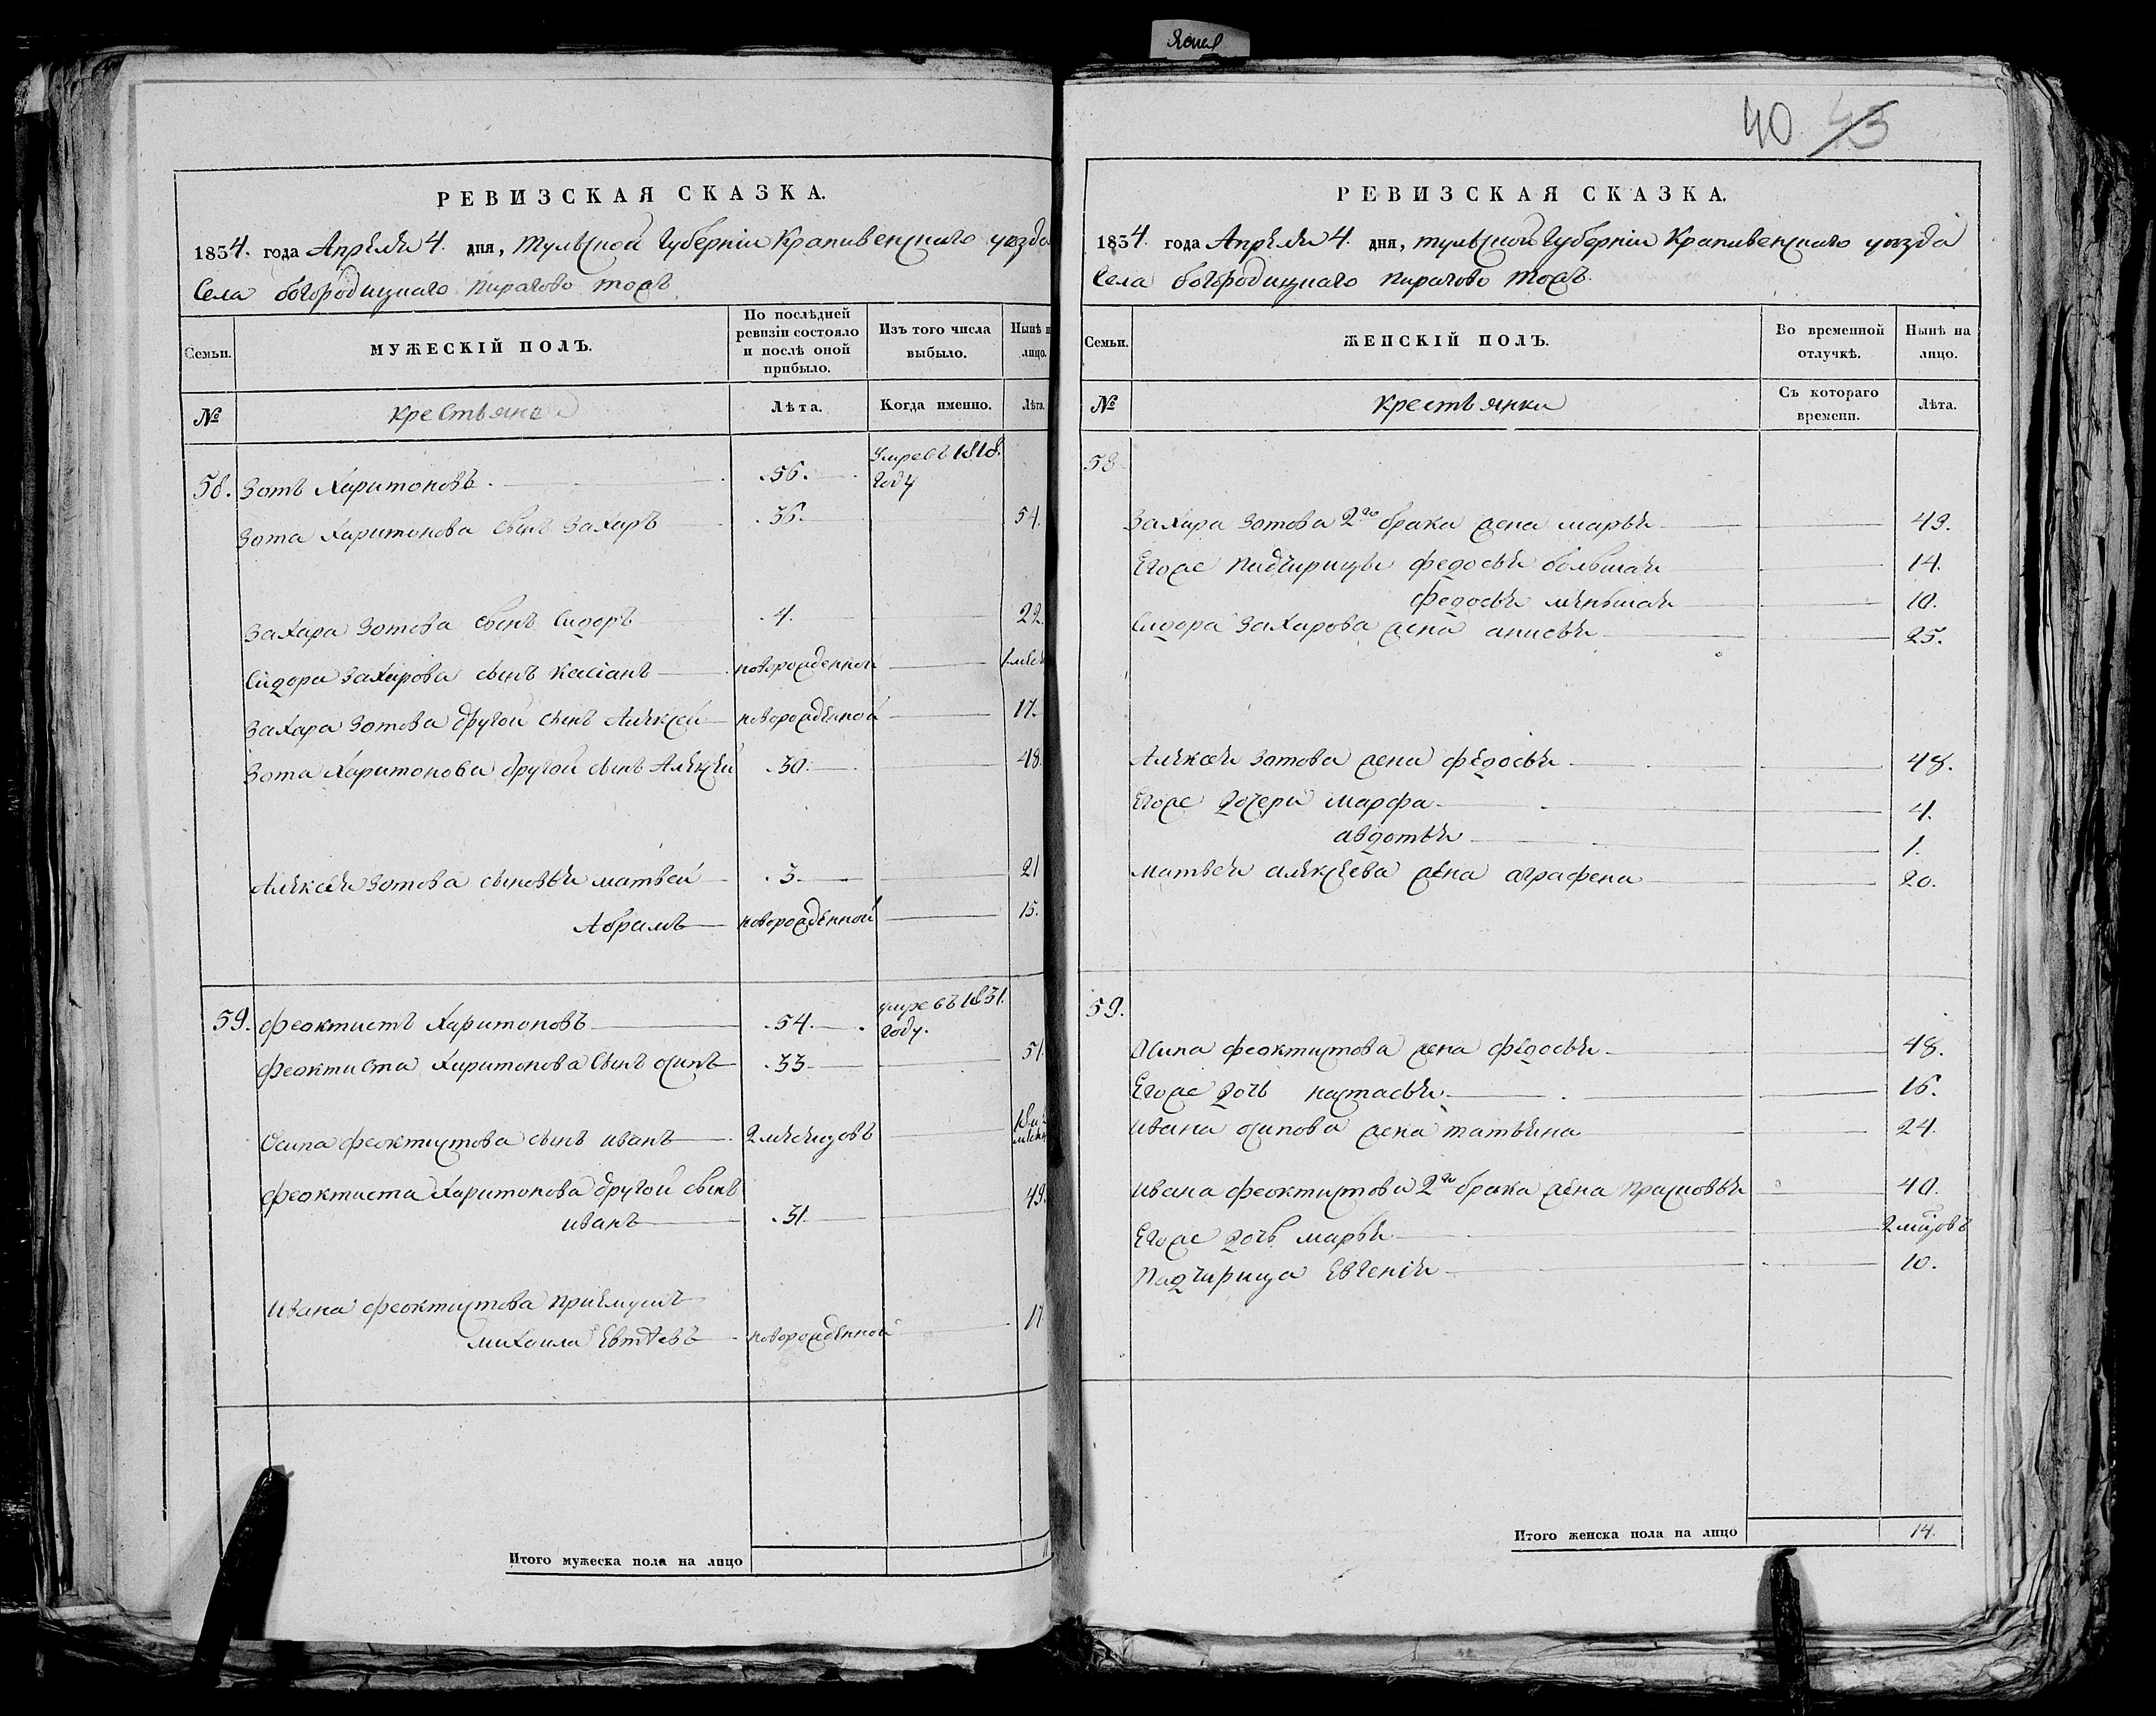 40 43
РЕВИЗСКАЯ СКАЗКА.
1854. года Апреля 4. дня, Тульской Губернiи Крапивенскаго уезда
Села богородицкаго пирагово тожъ
Семьи.
МУЖЕСКІЙ ПОЛЪ.
По послѣдней ревизіи состояло и послѣ оной прибыло.
Изъ того числа выбыло.
Нынѣ н лицо.
№
крестьяне
Лѣта.
Когда именно.
Лѣта.
58. Зотъ Харитоновъ. .56. Умре въ 1818. году
Зота Харитонова сынъ Захаръ .36. 54.
Захара Зотова сынъ Сидоръ .4. 22.
Сидора Захарова сынъ Касіанъ новорожденной 1 меся
Захара Зотова другой сынъ Алексей новорожденной 17.
Зота Харитонова другой сынъ Алексей .30. 48.
Алексея Зотова сыновья матвей .3. 21
Абрамъ новорожденной 15.
59. Феоктистъ Харитоновъ .54. умре въ 1831. году.
Феоктиста Харитонова сынъ осипъ .33. 51.
Осипа феоктистова сынъ иванъ 2 месецовъ 18 и
Феоктиста Харитонова другой сынъ
иванъ .31. 49.
Ивана феоктистова приемышъ
михаила Евтѣевъ новорожденной 17
Итого мужеска пола на лицо
РЕВИЗСКАЯ СКАЗКА.
1854. года Апреля 4. дня, тульской Губернiи Крапивенскаго уезда
Села богородицкаго пирагово тожъ.
Семьи.
ЖЕНСКІЙ ПОЛЪ.
Во временной отлучкѣ.
Нынѣ на лицо.
№
крестьянки
Съ котораго времени.
Лѣта.
58.
Захара Зотова 2го брака жена марья 49.
Егоже падчирицы федосья большая 14.
федосья меньшая 10.
Сидора Захарова жена анисья 25.
Алексея Зотова жена федосья 48.
Егоже дочери марфа 4.
авдотья 1.
матвея алексеева жена аграфена 20.
59.
Осипа феоктистова жена федосья 48.
Егоже дочь настасья 16.
ивана осипова жена татьяна 24.
ивана феоктистова 2го брака жена прасковья 40.
Егоже дочь марья 2 мцовъ
Падчирица Евгенія 10.
Итого женска пола на лицо 14.